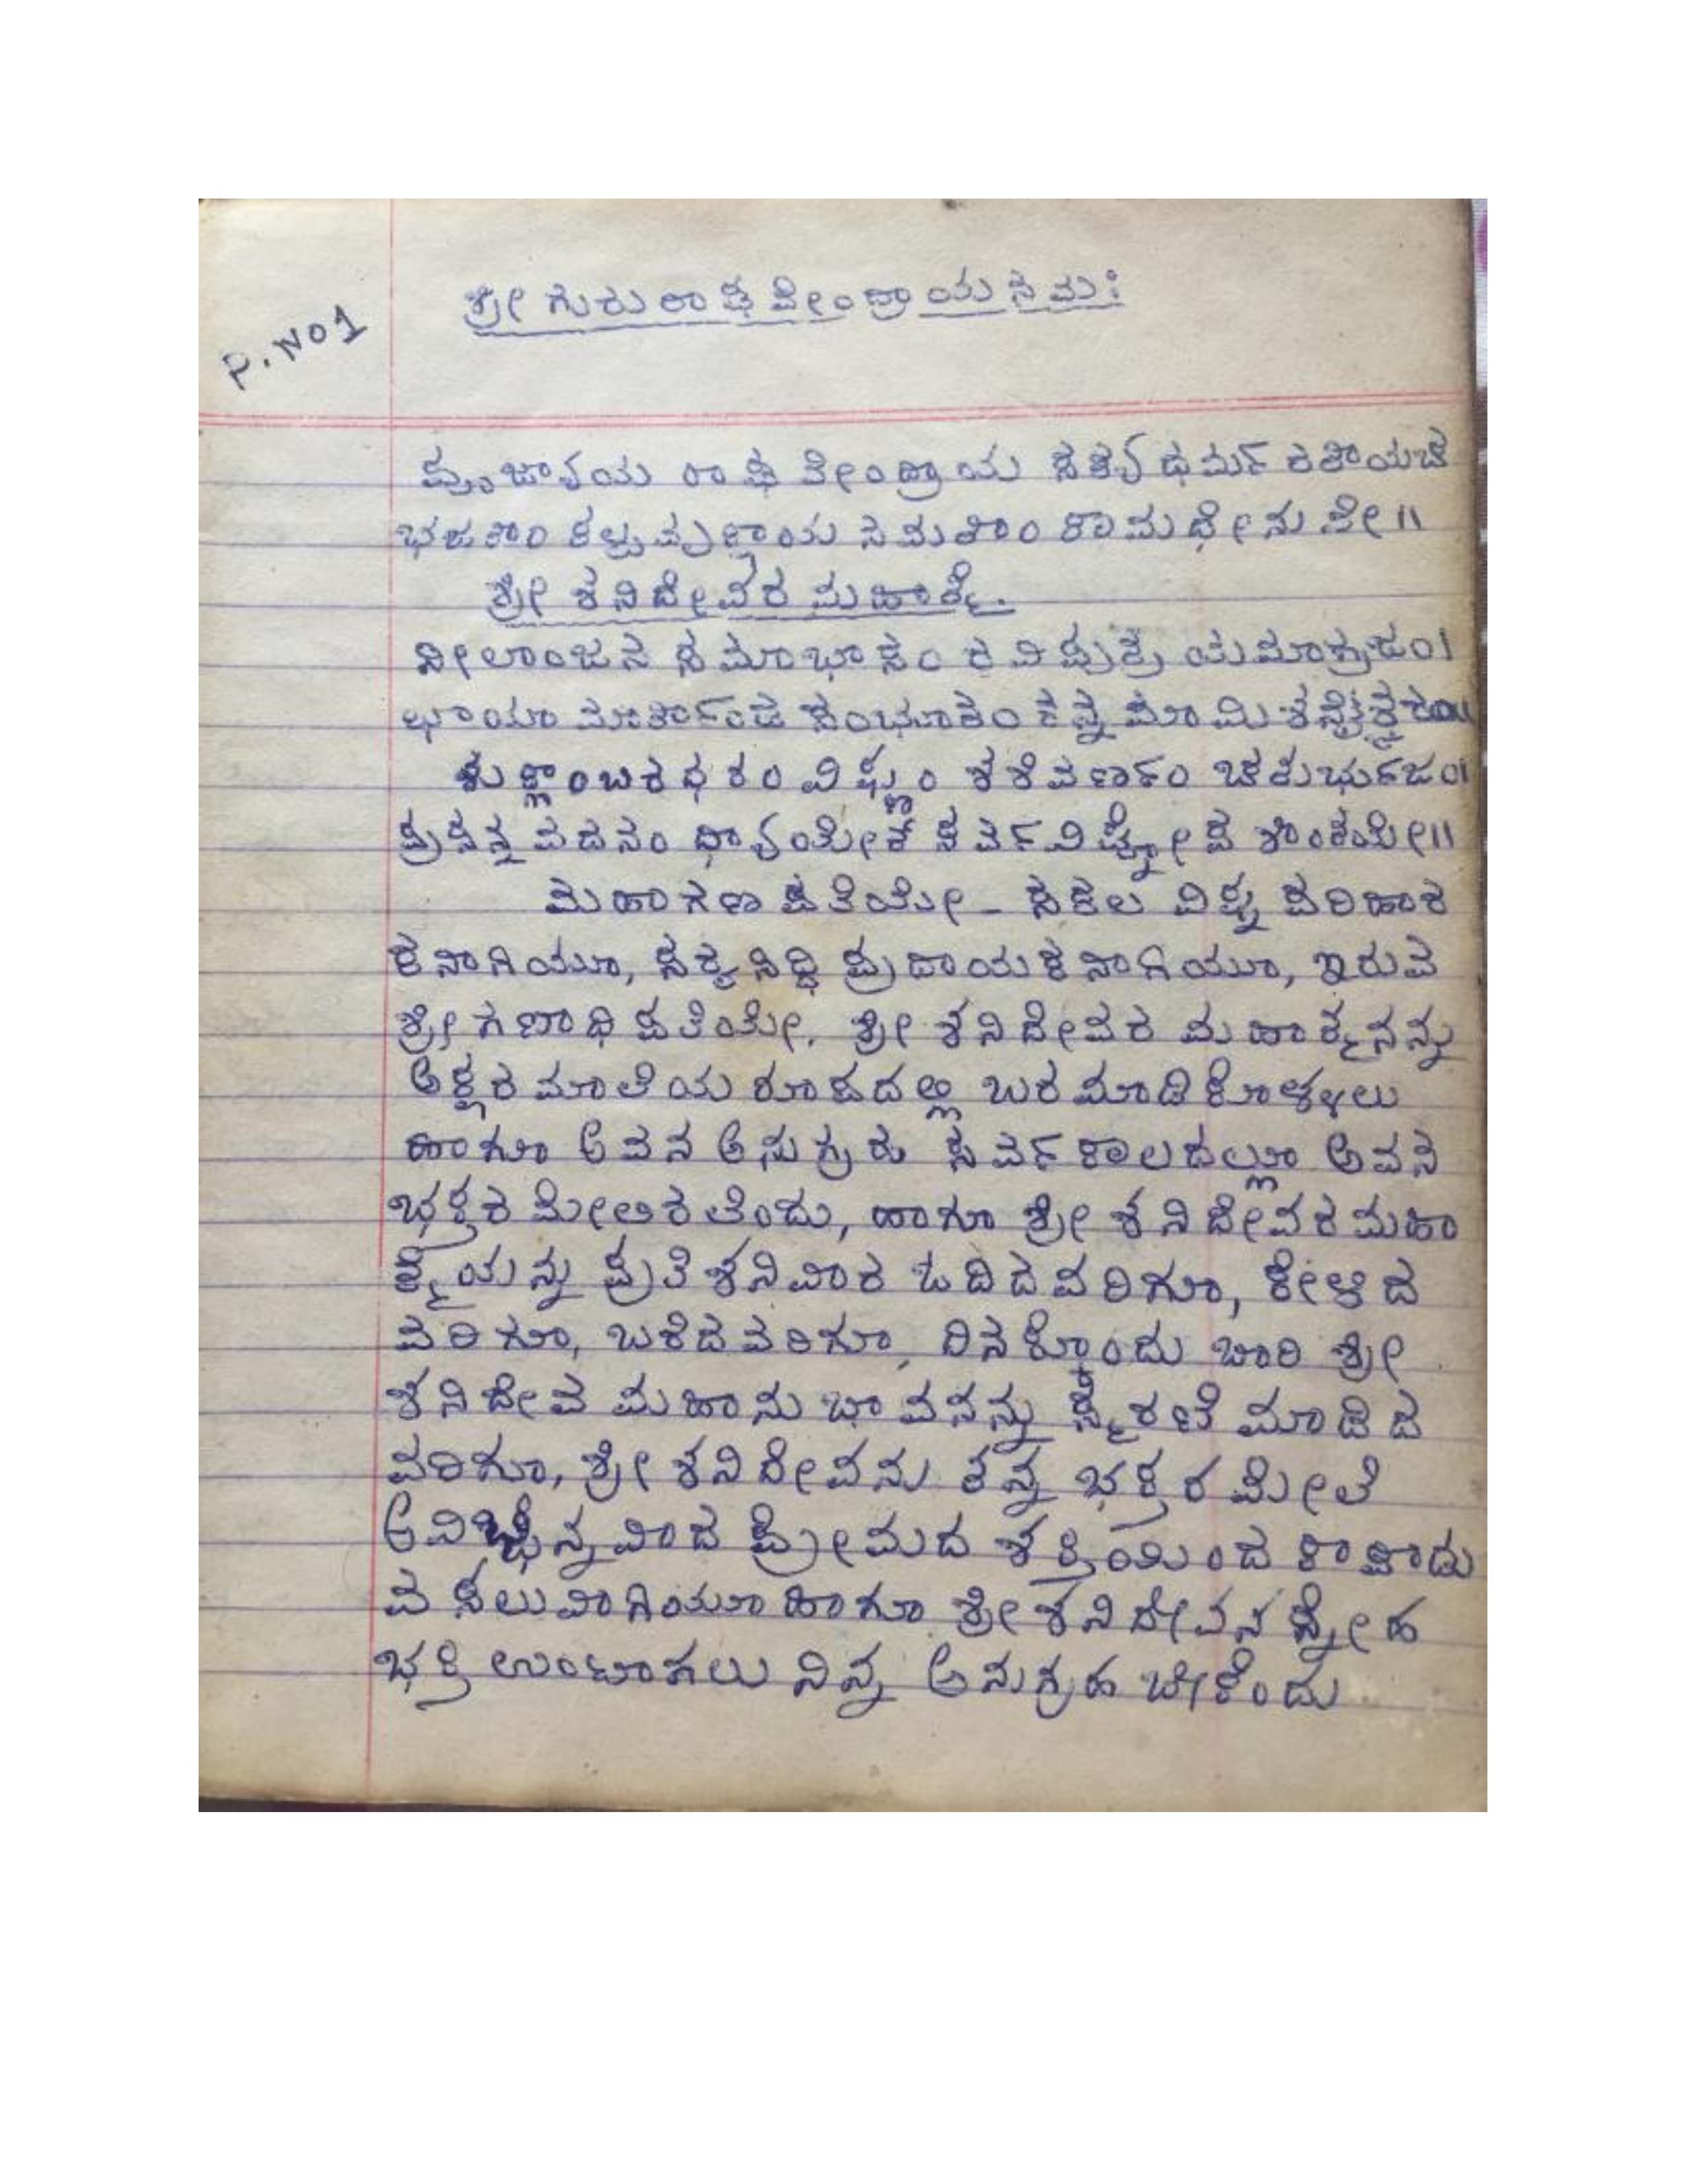 ಶ್ರೀ ಗುರು ರಾಘವೇಂದ್ರಾಯ ನಮಃ
P. NO 1
ಪೂಜ್ಯಾಯ ರಾಘವೇಂದ್ರಾಯ ಸತ್ಯ ಧರ್ಮ ರತಾಯಚ
ಭಜತಾಂ ಕಲ್ಪವೃಕ್ಷಾಯ ನಮತಾಂ ಕಾಮಧೇನುವೇ॥
ಶ್ರೀ ಶನಿದೇವರ ಮಹಾತ್ಮೆ.
ನೀಲಾಂಜನ ಸಮಾಭಾಸಂ ರವಿ ಪುತ್ರ ಯಮಾಗ್ರಜಂ।
ಛಾಯಾ ಮಾರ್ತಾಂಡ ಸಂಭೂತಂ ತನ್ನ ಮಾಮಿ ಶನೈಶ್ಚರಂ॥
ಶುಕ್ಲಾಂಬರ ಧರಂ ವಿಷ್ಣುಂ ಶಶಿವರ್ಣಂ ಚತುರ್ಭುಜಂ।
ಪ್ರಸನ್ನ ವದನಂ ಧ್ಯಾಯೇತ್ ಸರ್ವ ವಿಘ್ನೋಪ ಶಾಂತಯೇ॥
ಮಹಾಗಣಪತಿಯೇ - ಸಕಲ ವಿಘ್ನ ಪರಿಹಾರ
ಕನಾಗಿಯೂ, ಸತ್ಯಸಿದ್ಧಿ ಪ್ರದಾಯಕನಾಗಿಯೂ, ಇರುವ
ಶ್ರೀ ಗಣಾಧಿಪತಿಯೇ, ಶ್ರೀ ಶನಿದೇವರ ಮಹಾತ್ಮನನ್ನು
ಅಕ್ಷರ ಮಾಲೆಯ ರೂಪದಲ್ಲಿ ಬರಮಾಡಿಕೊಳ್ಳಲು
ಹಾಗೂ ಅವನ ಅನುಗ್ರಹ ಸರ್ವಕಾಲದಲ್ಲೂ ಅವನ
ಭಕ್ತರ ಮೇಲಿರಲೆಂದು, ಹಾಗೂ ಶ್ರೀ ಶನಿದೇವರ ಮಹಾ
ತ್ಮೆಯನ್ನು ಪ್ರತಿ ಶನಿವಾರ ಓದಿದವರಿಗೂ, ಕೇಳಿದ
ವರಿಗೂ, ಬರೆದವರಿಗೂ, ದಿನಕ್ಕೊಂದು ಬಾರಿ ಶ್ರೀ
ಶನಿದೇವ ಮಹಾನುಭಾವನನ್ನು ಸ್ಮರಣೆ ಮಾಡಿದ
ವರಿಗೂ, ಶ್ರೀ ಶನಿದೇವನು ತನ್ನ ಭಕ್ತರ ಮೇಲೆ
ಅವಿಚ್ಛಿನ್ನವಾದ ಪ್ರೇಮದ ಶಕ್ತಿಯಿಂದ ಕಾಪಾಡು
ವ ಸಲುವಾಗಿಯೂ ಹಾಗೂ ಶ್ರೀ ಶನಿದೇವನ ಸ್ನೇಹ
ಭಕ್ತಿ ಉಂಟಾಗಲು ನಿನ್ನ ಅನುಗ್ರಹ ಬೇಕೆಂದು